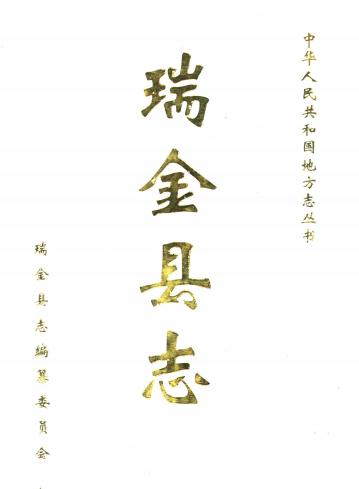 中华人民共和国地方志丛书
瑞金县志
瑞金县志编纂委员会